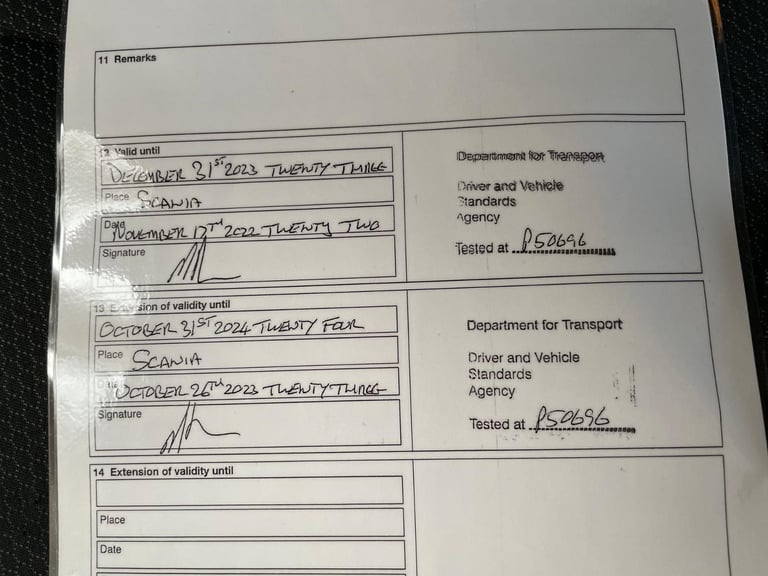 11 Remarks
12 Valid until
DECEMBER 31ST 2023 TWENTY THREE
Place SCANIA
Date NOVEMBER 17TH 2022 TWENTY TWO
Signature
Department for Transport
Driver and Vehicle
Standards
Agency
Tested at P50696
13 Extension of validity until
OCTOBER 31ST 2024 TWENTY FOUR
Place SCANIA
Date OCTOBER 26TH 2023 TWENTY THREE
Signature
Department for Transport
Driver and Vehicle
Standards
Agency
Tested at P50696
14 Extension of validity until
Place
Date